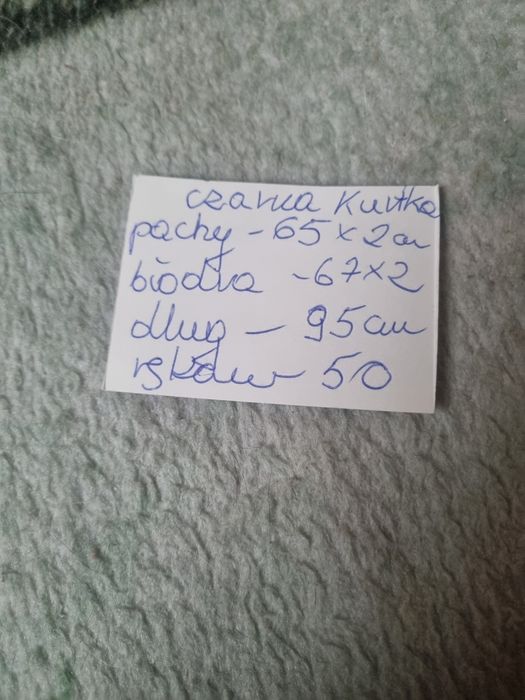 czarna kurtka
pachy - 65 x 2 cm
biodra - 67 x 2
dług - 95 cm
rękaw 50